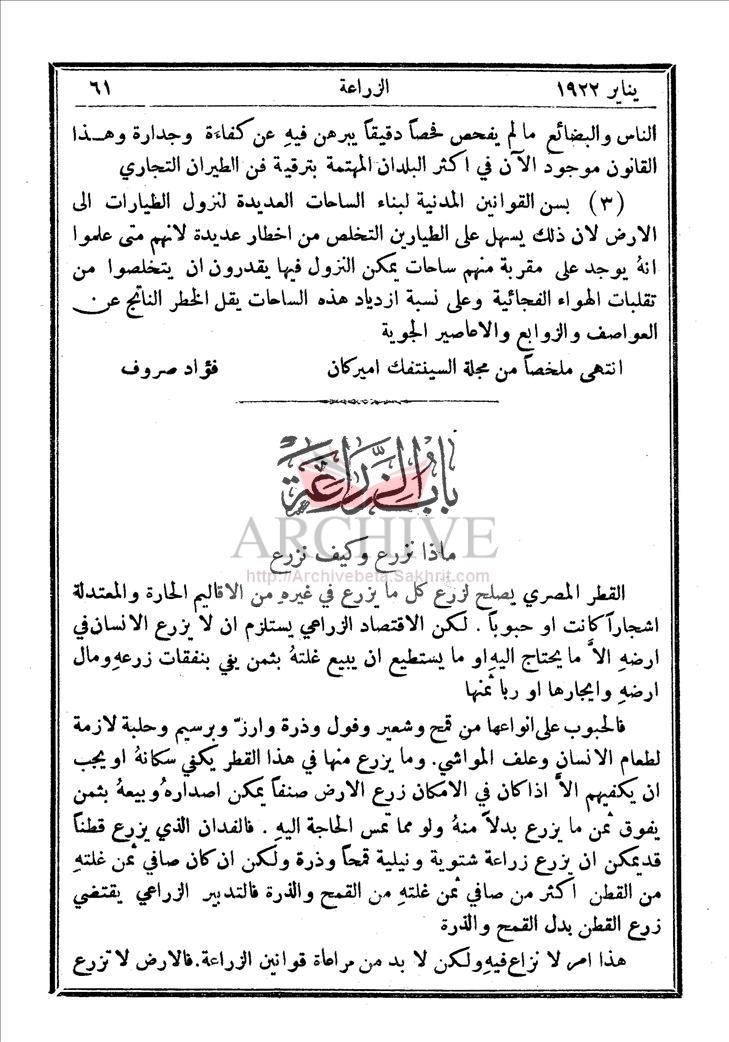 يناير ١٩٢٢ الزراعة ٦١
الناس والبضائع ما لم يفحص فحصاً دقيقاً يبرهن فيهِ عن كفاءة وجدارة وهـذا
القانون موجود الآن في اكثر البلدان المهتمة بترقية فن الطيران التجاري
(٣) بسن القوانين المدنية لبناء الساحات العديدة لنزول الطيارات الى
الارض لان ذلك يسهل على الطيارين التخلص من اخطار عديدة لانهم متى علموا
انهُ يوجد على مقربة منهم ساحات يمكن النزول فيها يقدرون ان يتخلصوا من
تقلبات الهواء الفجائية وعلى نسبة ازدياد هذه الساحات يقل الخطر الناتج عن
العواصف والزوابع والاعاصير الجوية
انتهى ملخصاً من مجلة السينتفك اميركان فؤاد صروف
بابُ الزِّرَاعَة
ARCHIVE
ماذا نزرع وكيف نزرع
http://Archivebeta.Sakhrit.com
القطر المصري يصلح لزرع كل ما يزرع في غيرهِ من الاقاليم الحارة والمعتدلة
اشجاراً كانت او حبوباً . لكن الاقتصاد الزراعي يستلزم ان لا يزرع الانسان في
ارضهِ الاَّ ما يحتاج اليهِ او ما يستطيع ان يبيع غلتهُ بثمن يفي بنفقات زرعهِ ومال
ارضهِ وايجارها او ربا ثمنها
فالحبوب على انواعها من قمح وشعير وفول وذرة وارزّ وبرسيم وحلبة لازمة
لطعام الانسان وعلف المواشي. وما يزرع منها في هذا القطر يكفي سكانهُ او يجب
ان يكفيهم الاَّ اذا كان في الامكان زرع الارض صنفاً يمكن اصدارهُ وبيعهُ بثمن
يفوق ثمن ما يزرع بدلاً منهُ ولو مما تمس الحاجة اليهِ . فالفدان الذي يزرع قطناً
قد يمكن ان يزرع زراعة شتوية ونيلية قمحاً وذرة ولكن ان كان صافي ثمن غلتهِ
من القطن اكثر من صافي ثمن غلتهِ من القمح والذرة فالتدبير الزراعي يقتضي
زرع القطن بدل القمح والذرة
هذا امر لا نزاع فيهِ ولكن لا بد من مراعاة قوانين الزراعة. فالارض لا تزرع